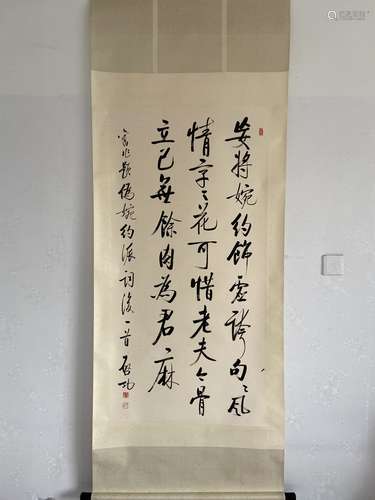 妄將婉約飾虛誇句〻風
情字〻花可惜老夫今骨
立已無餘肉為君麻
舊作題偽婉約派詞後一首 啟功